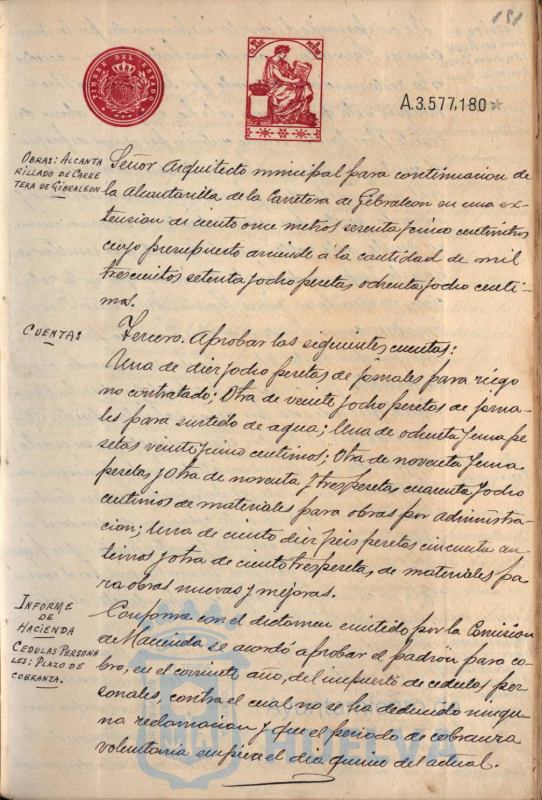 181
TIMBRE DEL ESTADO
A.3.577.180
OBRAS: ALCANTA
RILLADO DE CARRE
TERA DE GIBRALEON
Señor Arquitecto municipal para continuacion de
la Alcantarilla de la Carretera de Gibraleon en una ex-
tension de ciento once metros sesenta y cinco centimetros
cuyo presupuesto asciende á la cantidad de mil
trescientos setenta y ocho pesetas ochenta y ocho centi-
mos.
CUENTAS
Tercero. Aprobar las siguientes cuentas:
Una de diez y ocho pesetas de jornales para riego
no contratado; Otra de veinte y ocho pesetas de jorna-
les para surtido de agua; Una de ochenta y una pe-
setas veinte y cinco centimos; Otra de noventa y una
pesetas y otra de noventa y tres pesetas cuarenta y ocho
centimos de materiales para obras por administra-
cion; Una de ciento diez y seis pesetas cincuenta cen-
timos y otra de ciento tres pesetas de materiales pa-
ra obras nuevas y mejoras.
INFORME
DE
HACIENDA
CEDULAS PERSONA
LES: PLAZO DE
COBRANZA.
Conforme con el dictamen emitido por la Comision
de Hacienda se acordó aprobar el padrón para co-
bro, en el corriente año, del impuesto de cedulas per-
sonales, contra el cual no se ha deducido ningu-
na reclamacion y que el periodo de cobranza
voluntaria empiece el dia quince del actual.
HUELVA